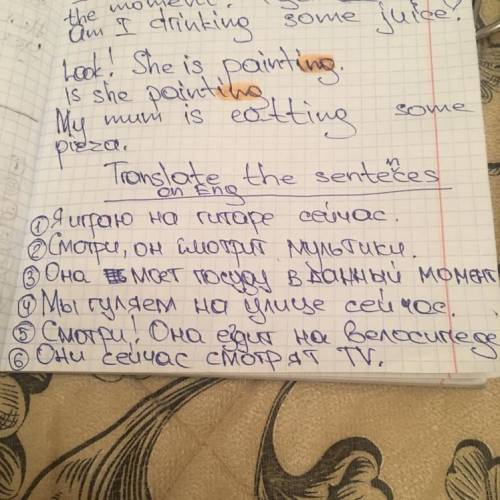 the moment.
am I drinking some juice?
Look! She is painting.
Is she painting
My mum is eatting some
pizza.
Translate the sentences
on Eng
① Я играю на гитаре сейчас.
② Смотри, он смотрит мультики.
③ Она моет посуду в данный момент
④ Мы гуляем на улице сейчас.
⑤ Смотри! Она ездит на велосипеде
⑥ Они сейчас смотрят TV.